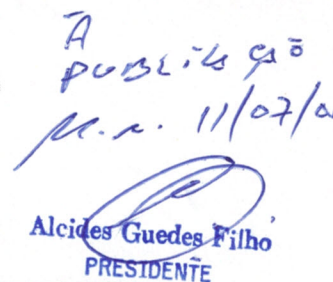 À
PUBLICAÇÃO
M.A. 11/07/0
Alcides Guedes Filho
PRESIDENTE